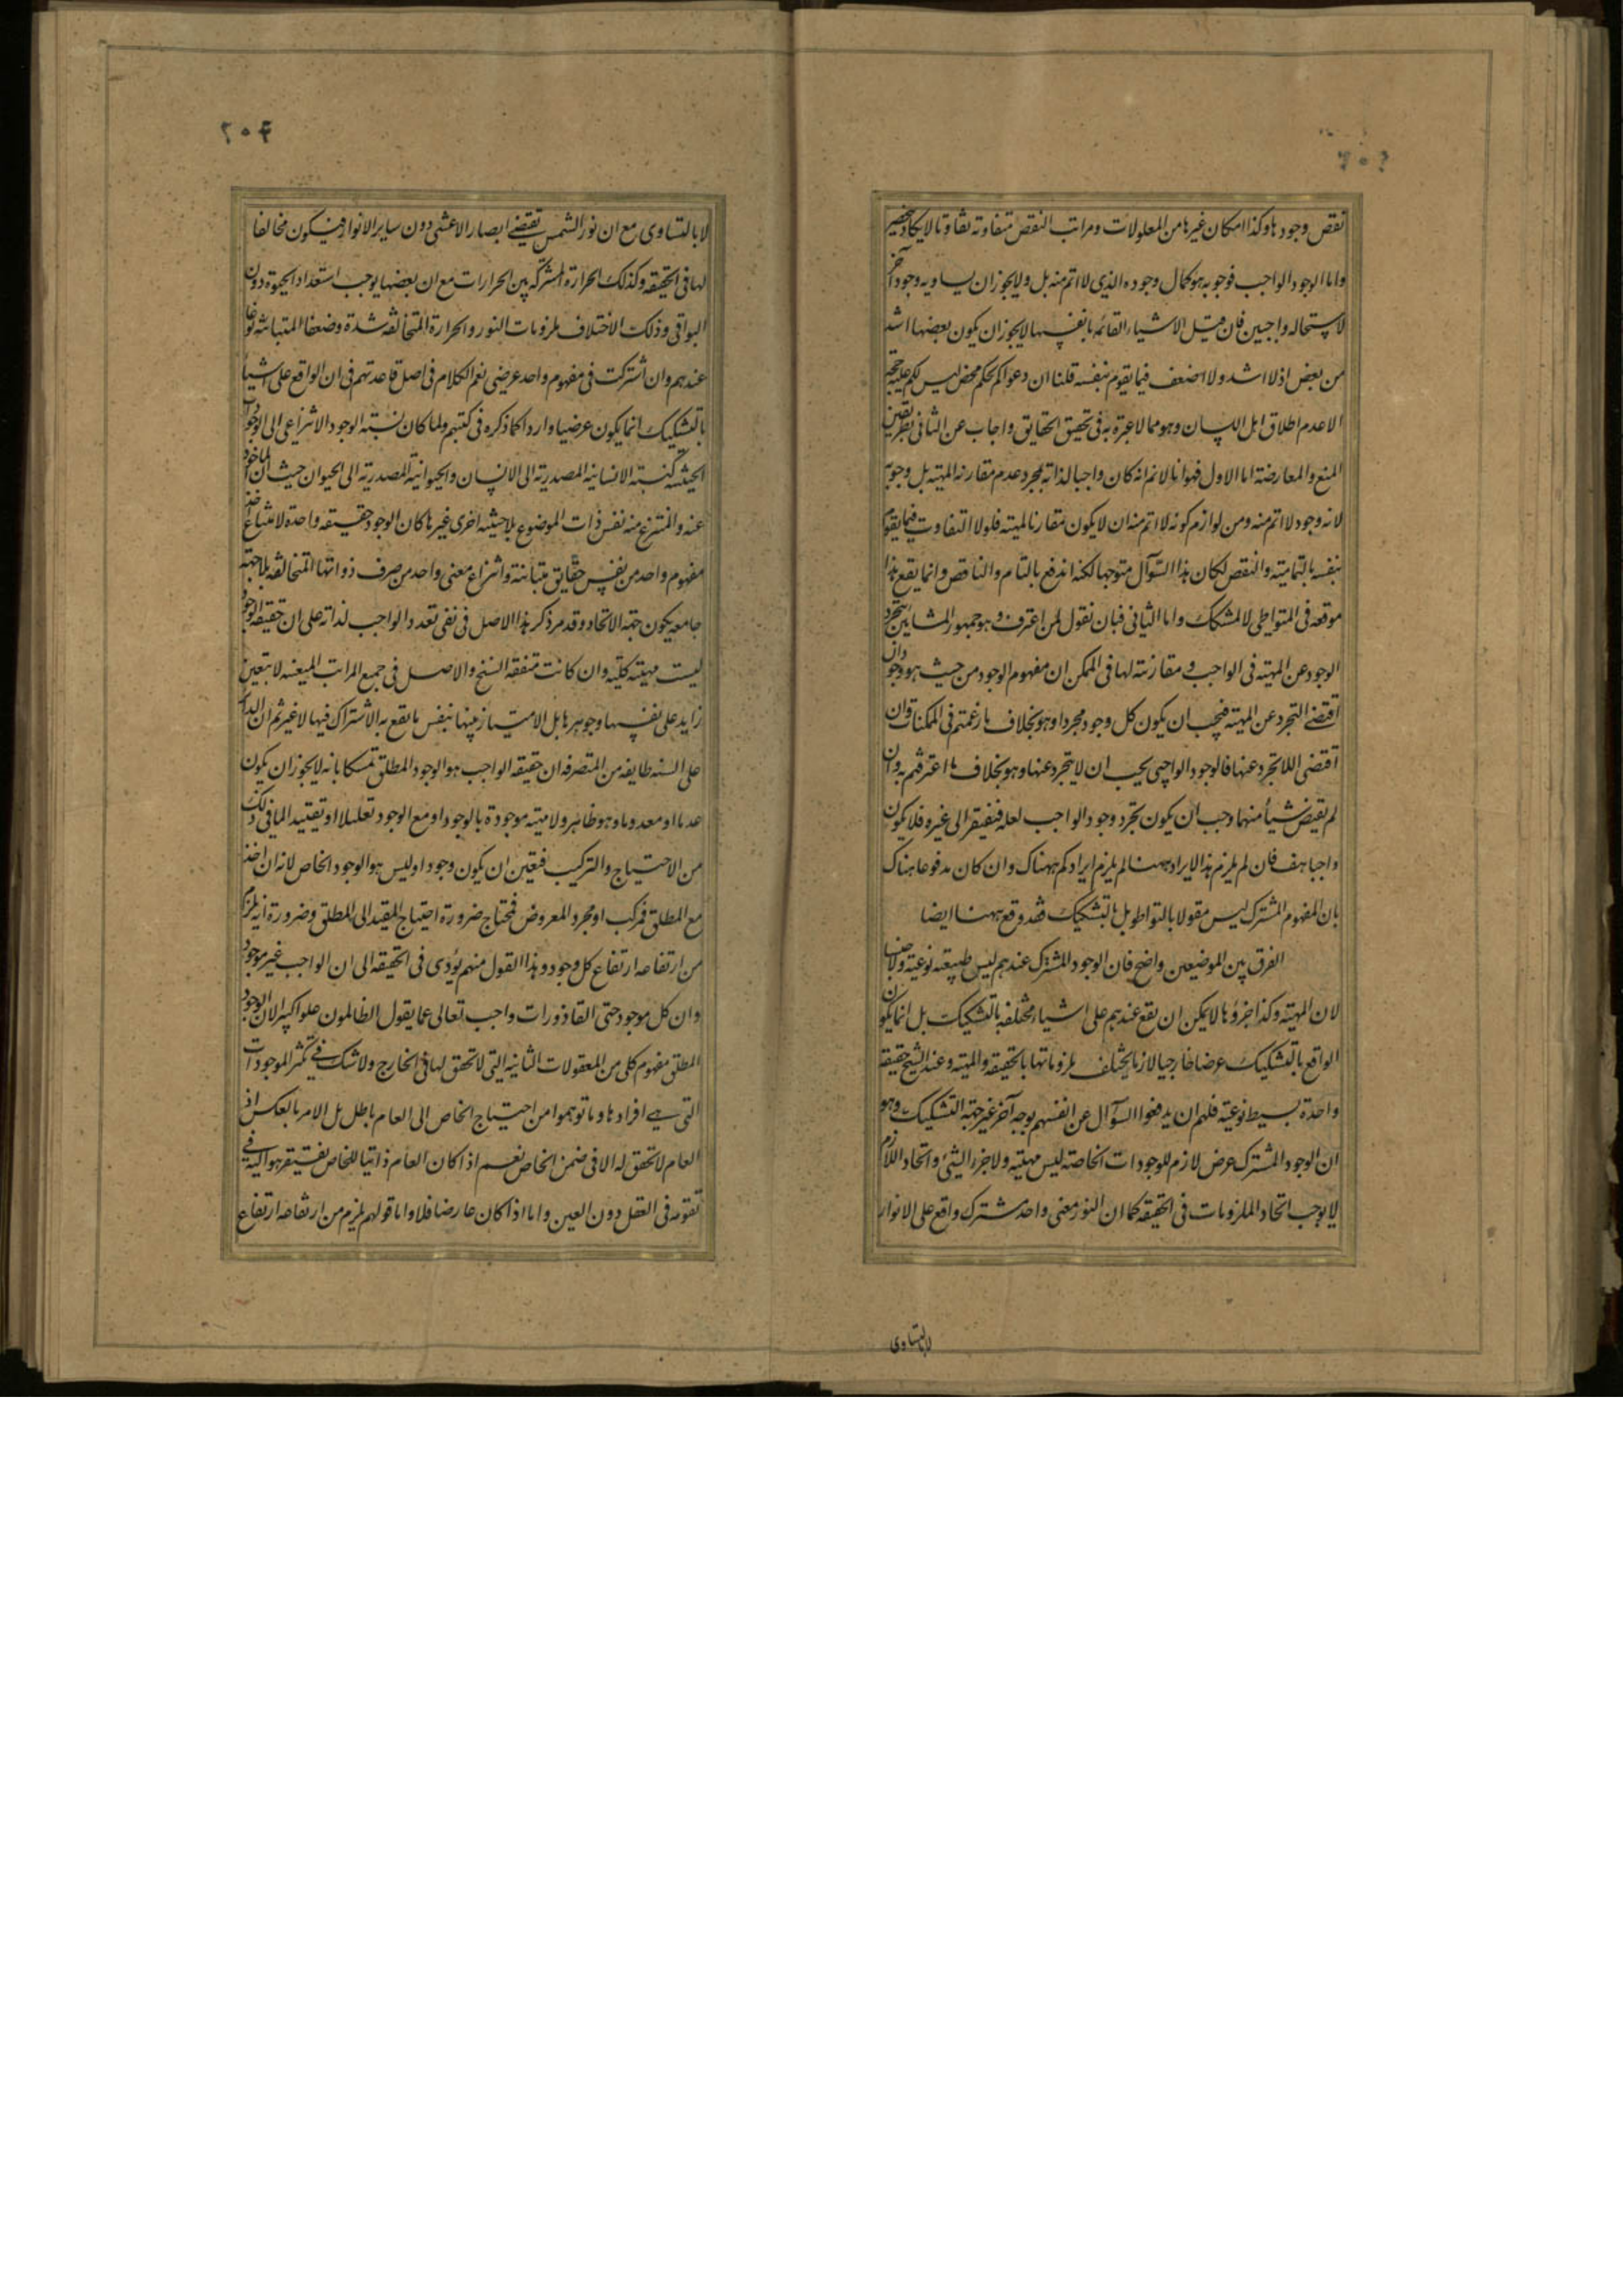 نقص وجودها وكذا امكان غيرها من المعلولات ومراتب النقص متفاوته تفاوتا لايكاد ينحصر
واما الوجود الواجب فوجوبه هو كمال وجوده الذي لا اتم منه بل ولايجوز ان يساويه وجود آخر
لاستحاله واجبين فان قيل الاشياء القائمه بانفسها لايجوز ان يكون بعضها اشد
من بعض اذ لا اشد ولا اضعف فيما يقوم بنفسه قلنا ان دعواكم تحكم محض ليس لكم عليه حجة
الا عدم اطلاق اهل اللسان وهو مما لا عبرة به فى تحقيق الحقايق واجاب عن الثانى بطريقين
المنع والمعارضة اما الاول فهو انا لانم انه كان واجبا لذاته لمجرد عدم مقارنه المهيته بل وجوبه
لانه وجود لا اتم منه ومن لوازم كونه لا اتم منه ان لايكون مقارنا لمهيته فلولا التفاوت فيما يقوم
بنفسه بالتماميته والنقص لكان هذا السؤآل متوجها لكنه اندفع بالتام والناقص وانما يقع هذا
موقعه فى المتواطى لا المشكك واما الثانى فبان نقول لمن اعترف وهو جمهور المشايين بتجرد
الوجود عن المهيته فى الواجب ومقارنته لها فى الممكن ان مفهوم الوجود من حيث هو وجود ان
اقتضى التجرد عن المهيته فيجب ان يكون كل وجود مجردا وهو بخلاف ما زعمتم فى الممكنات وان
اقتضى اللاتجرد عنها فالوجود الواجبى يجب ان لايتجرد عنها وهو بخلاف ما اعترفتم به وان
لم يقتض شيأ منهما وجب ان يكون تجرد وجود الواجب لعله فيفتقر الى غيره فلا يكون
واجبا هف فان لم يلزم هذا الايراد ههنا لم يلزم ايرادكم ههناك وان كان مدفوعا هناك
بان المفهوم المشترك ليس مقولا بالتواطو بل بالتشكيك فقد وقع ههنا ايضا
الفرق بين الموضيعين واضح فان الوجود المشترك عندهم ليس طبيعته نوعيته ولا جنسا
لان المهيته وكذا جزؤها لايمكن ان تقع عندهم على اشياء مختلفه بالتشكيك بل انما يكون
الواقع بالتشكيك عرضا خارجيا لازما يختلف ملزوماتها بالحقيقه والمهيته وعند الشيخ حقيقة
واحدة بسيطه نوعيته فلهم ان يدفعوا السؤآل عن انفسهم بوجه آخر غير جهته التشكيك وهو
ان الوجود المشترك عرض لازم للوجودات الخاصته ليس مهيته ولا جزء الشئ واتحاد اللازم
لايوجب اتحاد الملزومات فى الحقيقه كما ان النور معنى واحد مشترك واقع على الانوار
لابالتساوى
٢٠٤
لابالتساوى مع ان نور الشمس يقتضى ابصار الاعشى دون ساير الانوار فيكون مخالفا
لها فى الحقيقه وكذلك الحرارة المشتركه بين الحرارات مع ان بعضها يوجب استعداد الحيوة دون
البواقى وذلك لاختلاف ملزومات النور والحرارة المتخالفه شدة وضعفا المتباينه نوعا
عندهم وان اشتركت فى مفهوم واحد عرضى نعم الكلام فى اصل قاعدتهم فى ان الواقع على اشيآ
بالتشكيك انما يكون عرضيا وارد كما ذكره فى كتبهم ولما كان نسبته الوجود الانتزاعى الى الوجودات
الحيثيه كنسبته الانسانية المصدرية الى الانسان والحيوانية المصدرية الى الحيوان حيث ان الماخوذ
عنه والمنتزع منه نفس ذات الموضوع بلاحيثيه اخرى غيرها كان الوجود حقيقه واحدة لامتناع اخذ
مفهوم واحد من نفس حقايق متباينة وانتزاع معنى واحد من صرف ذواتها المتخالفه بلاجهته
جامعه يكون جهته الاتحاد وقد مر ذكر هذا الاصل فى نفى تعدد الواجب لذاته على ان حقيقه الوجود
ليست مهيته كليه وان كانت متفقه السنخ والاصل فى جمع المراتب المعينه لا بتعين
زايد على نفسها وجوهرها بل الامتياز بينها بنفس ما يقع به الاشتراك فيها لاغير ثم ان الدائر
على السنه طايفه من المتصرفه ان حقيقه الواجب هو الوجود المطلق تمسكا بانه لايجوز ان يكون
عدما او معدوما وهو ظاهر ولا مهيته موجودة بالوجود او مع الوجود تعليلا او تقييد الما فى ذلك
من الاحتياج والتركيب فتعين ان يكون وجودا وليس هو الوجود الخاص لانه ان اخذ
مع المطلق فمركب او مجرد المعروض فمحتاج ضرورة احتياج المقيد الى المطلق وضرورة انه يلزم
من ارتفاعه ارتفاع كل وجود وهذا القول منهم يؤدى فى الحقيقه الى ان الواجب غير موجود
وان كل موجود حتى القاذورات واجب تعالى عما يقول الظالمون علوا كبيرا لان الوجود
المطلق مفهوم كلى من المعقولات الثانيه التى لاتحقق لها فى الخارج ولاشك فى تكثر الموجودات
التى هى افرادها وما توهموا من احتياج الخاص الى العام باطل بل الامر بالعكس اذ
العام لاتحقق له الا فى ضمن الخاص نعم اذا كان العام ذاتيا للخاص يفتقر هو اليه فى
تقومه فى العقل دون العين واما اذا كان عارضا فلا واما قولهم يلزم من ارتفاعه ارتفاع